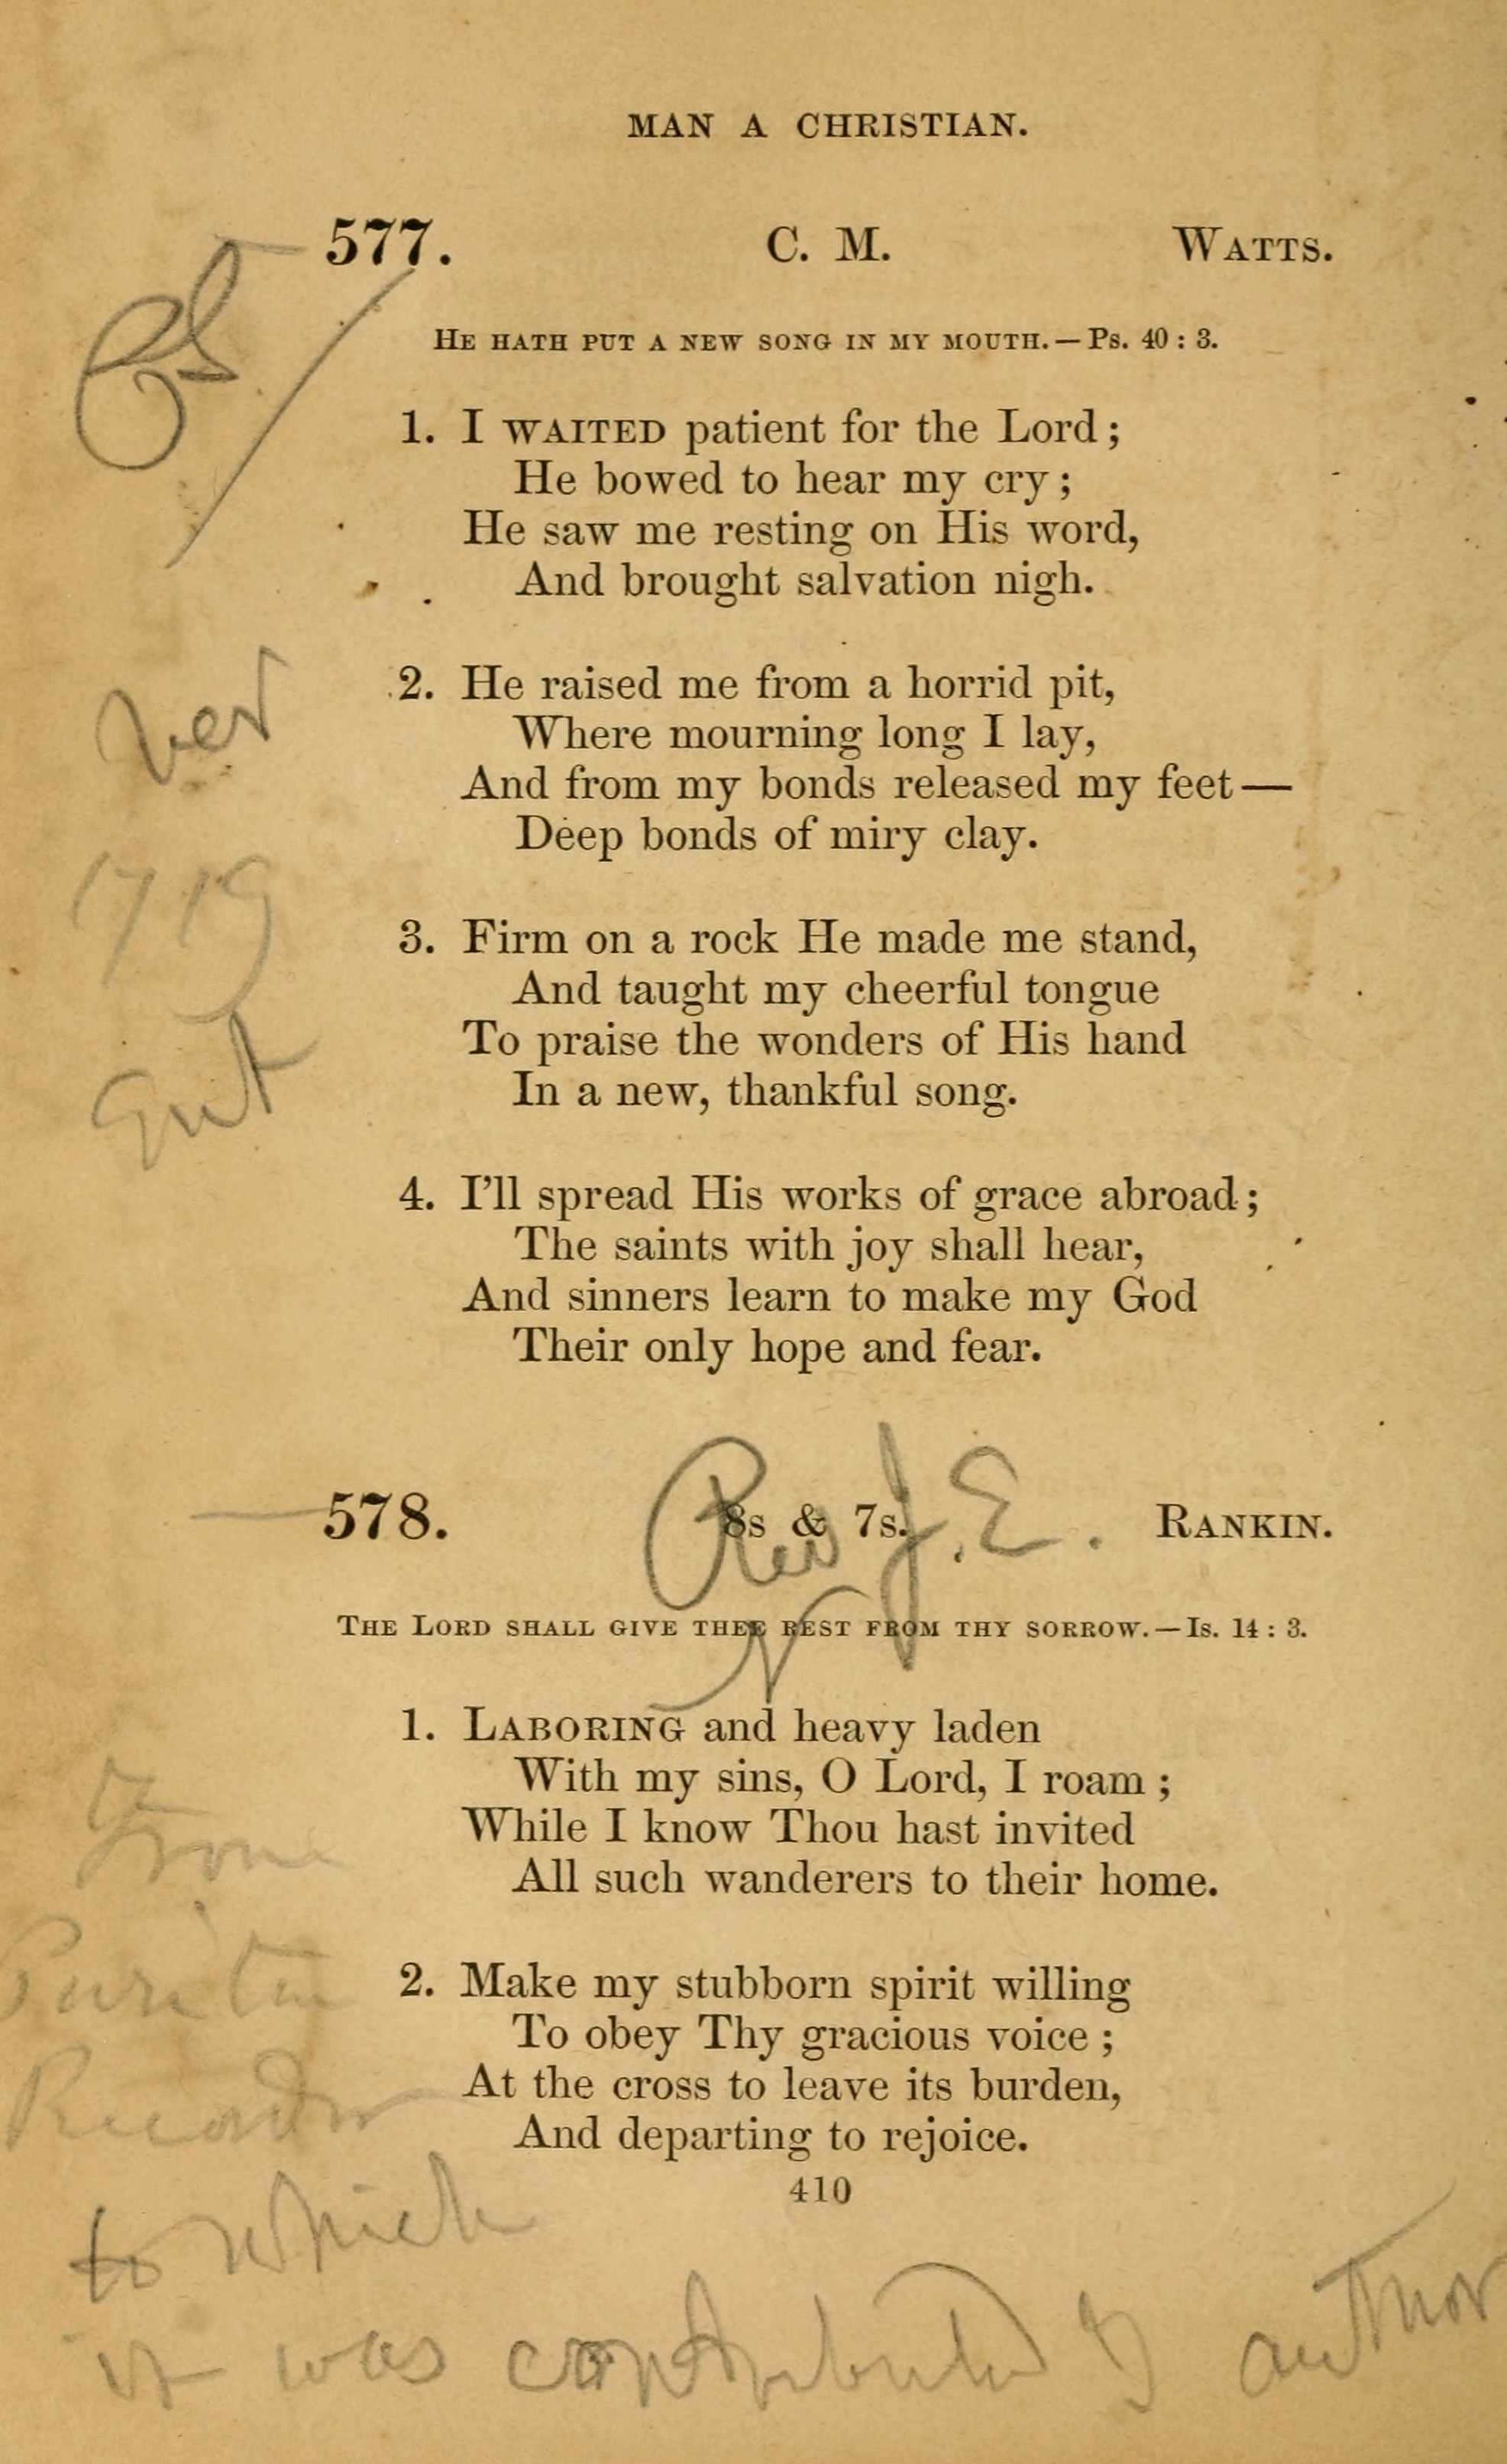 MAN A CHRISTIAN.
577. C. M. WATTS.
Ps
HE HATH PUT A NEW SONG IN MY MOUTH. — Ps. 40 : 3.
1. I WAITED patient for the Lord ;
He bowed to hear my cry ;
He saw me resting on His word,
And brought salvation nigh.
2. He raised me from a horrid pit,
Where mourning long I lay,
And from my bonds released my feet —
Deep bonds of miry clay.
ver
1719
3. Firm on a rock He made me stand,
And taught my cheerful tongue
To praise the wonders of His hand
In a new, thankful song.
4. I'll spread His works of grace abroad ;
The saints with joy shall hear,
And sinners learn to make my God
Their only hope and fear.
578. 8s & 7s. Rev J. E. RANKIN.
THE LORD SHALL GIVE THEE REST FROM THY SORROW. — Is. 14 : 3.
1. LABORING and heavy laden
With my sins, O Lord, I roam ;
While I know Thou hast invited
All such wanderers to their home.
From
Puritan
Recorder
2. Make my stubborn spirit willing
To obey Thy gracious voice ;
At the cross to leave its burden,
And departing to rejoice.
410
to which
it was contributed by author